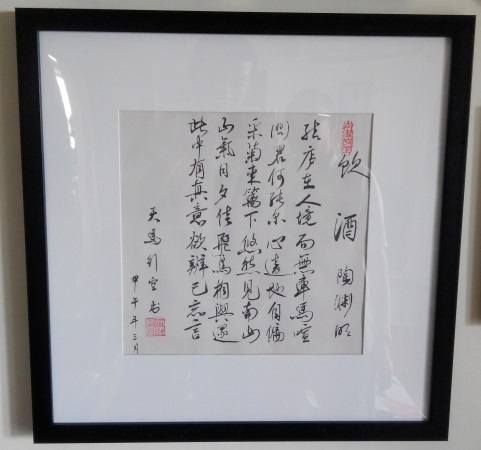 饮酒 陶渊明
结庐在人境而無車馬喧
问君何能尔心遠地自偏
采菊東篱下悠然見南山
山氣日夕佳飛鳥相與還
此中有真意欲辨已忘言
天馬行空书
甲午年三月